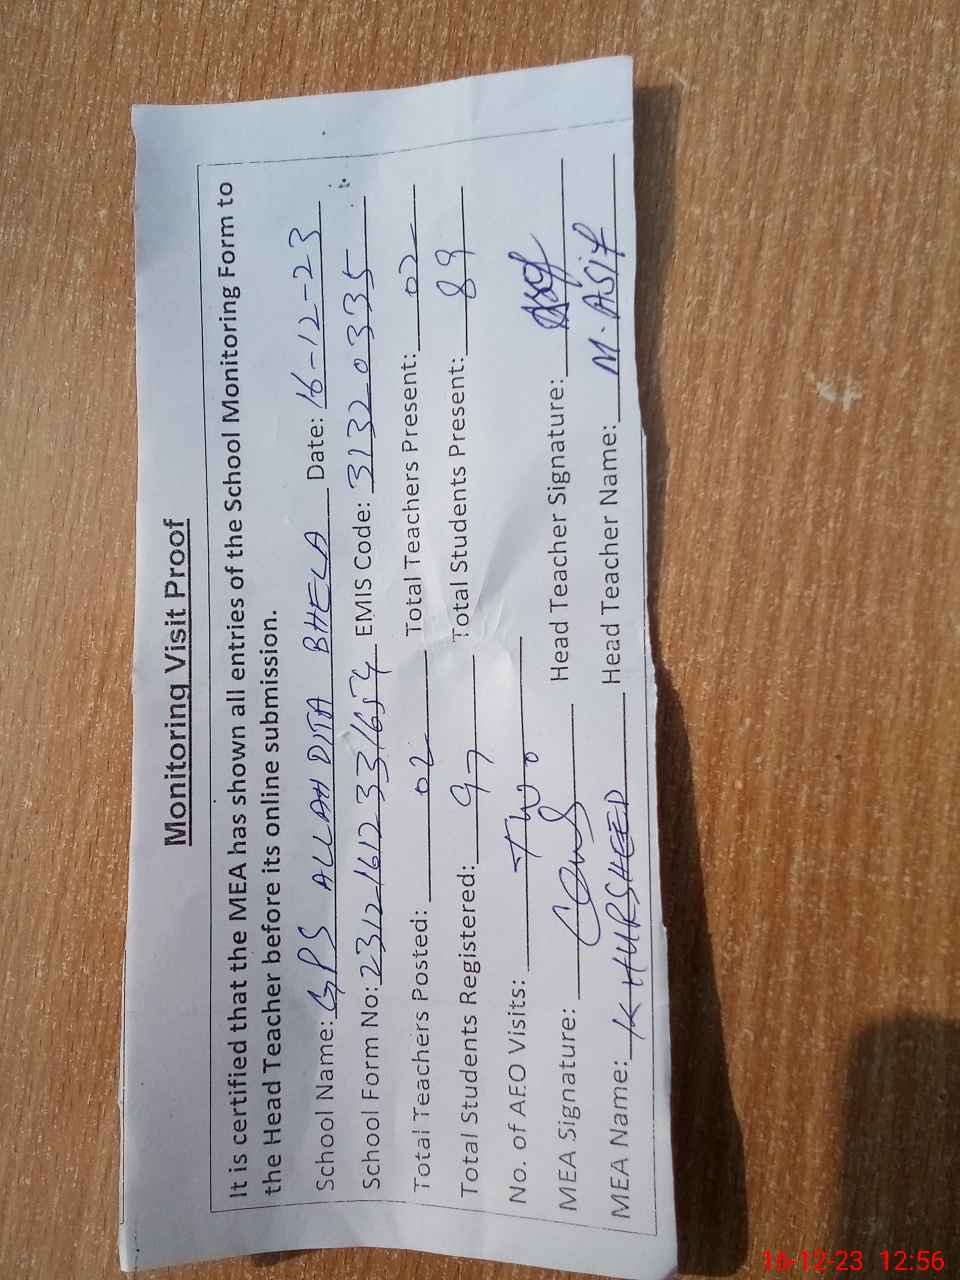 Monitoring Visit Proof
It is certified that the MEA has shown all entries of the School Monitoring Form to
the Head Teacher before its online submission.
School Name: GPS ALLAH DITA BHELA Date: 16-12-23
School Form No: EMIS Code: 31320335
Total Teachers Posted: 02 Total Teachers Present: 02
Total Students Registered: 97 Total Students Present: 89
No. of AEO Visits: Two
MEA Signature: Head Teacher Signature:
MEA Name: KHURSHEED Head Teacher Name: M. ASIF
16-12-23 12:56